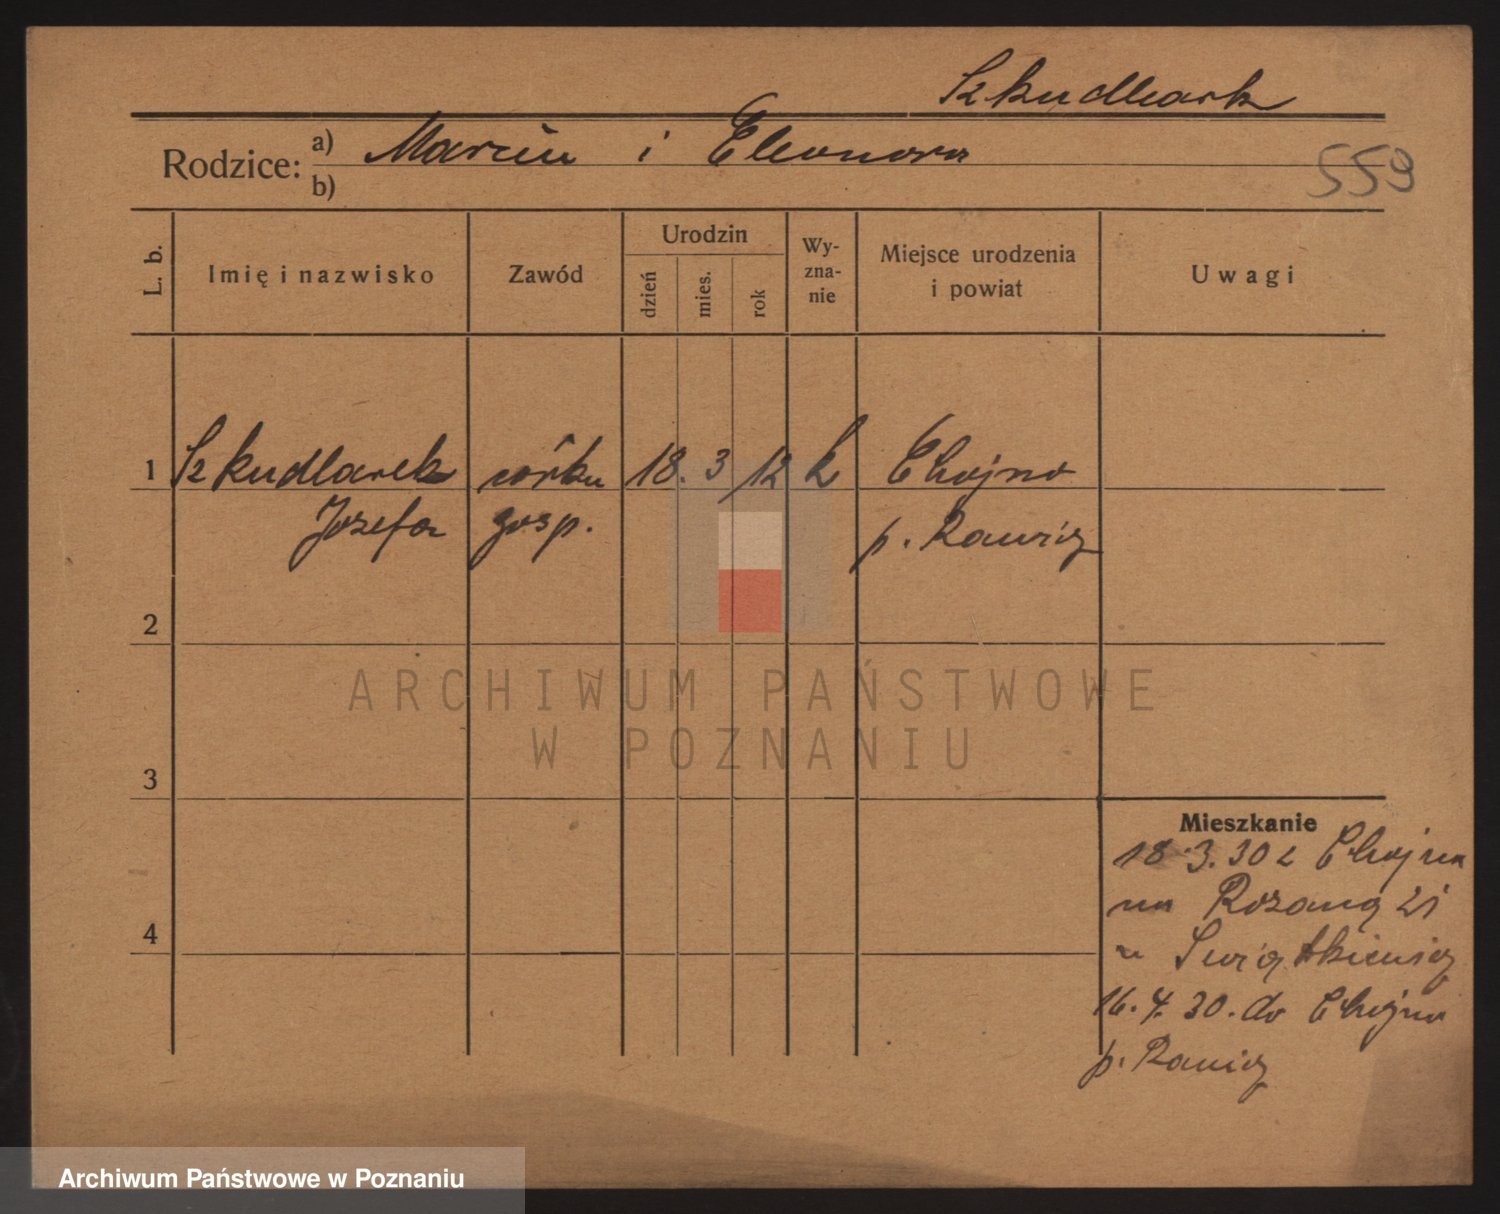 Szkudlarek
Rodzice: a) Marcin i Eleonora
b)
559
L. b.
Imię i nazwisko
Zawód
Urodzin
dzień
mies.
rok
Wy-
zna-
nie
Miejsce urodzenia
i powiat
Uwagi
1 Szkudlarek córka 18. 3 12 k Chojno
Józefa gosp. p. Rawicz
2
3
4
ARCHIWUM PAŃSTWOWE
W POZNANIU
Mieszkanie
18.3.30 z Chojna
na Różaną 21
u
16.4.30. do Chojna
p. Rawicz
Archiwum Państwowe w Poznaniu